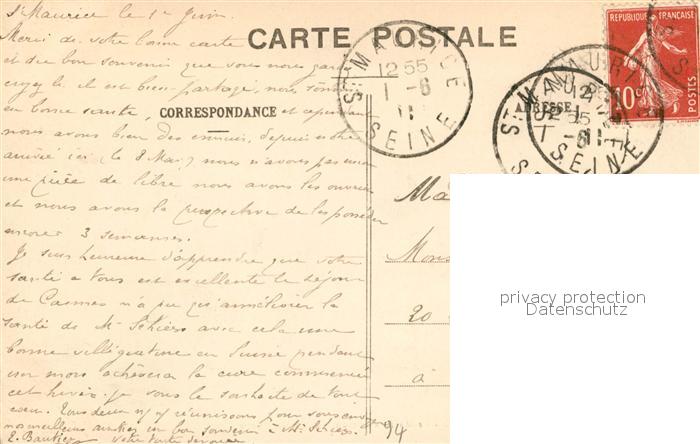 St Maurice le 1er Juin.
Merci de votre bonne carte
et du bon souvenir que vous nous gardez
croyez le il est bien partagé, nous sommes
en bonne santé, et cependant
nous avons bien des ennuis, depuis notre
arrivée ici (le 8 Mai) nous n'avons pas encore
une pièce de libre nous avons les ouvriers
et nous avons la perspective de les posséder
encore 3 semaines.
Je suis heureuse d'apprendre que votre
santé à tous est excellente le séjour
de Cannes n'a pu qu'améliorer la
santé de Mr avec cela une
bonne villégiature en Suisse pendant
un mois achèvera la cure commencée
cet hiver. je vous le souhaite de tout
cœur. Tous deux nous réunissons pour vous envoyer
nos meilleures amitiés un bon souvenir à Mr
votre toute dévouée
CARTE POSTALE
CORRESPONDANCE
ADRESSE
ST MAURICE
12 55
1 -6
11
SEINE
ST MAURICE
12 55
1 -6
11
SEINE
REPUBLIQUE FRANÇAISE
10c
POSTES
Ma
Mons
20
à
94
privacy protection
Datenschutz